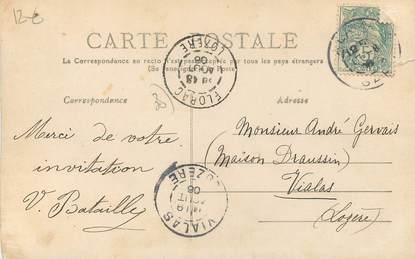 CARTE POSTALE
La Correspondance au recto n'est pas acceptée par tous les pays étrangers
(Se renseigner à la Poste)
Correspondance
Adresse
FLORAC
LOZÈRE
18
AOUT
06
Merci de votre
invitation
V. Bataille
Monsieur André Gervais
(Maison Draussin)
Vialas
(Lozère)
VIALAS
LOZÈRE
19
AOUT
06